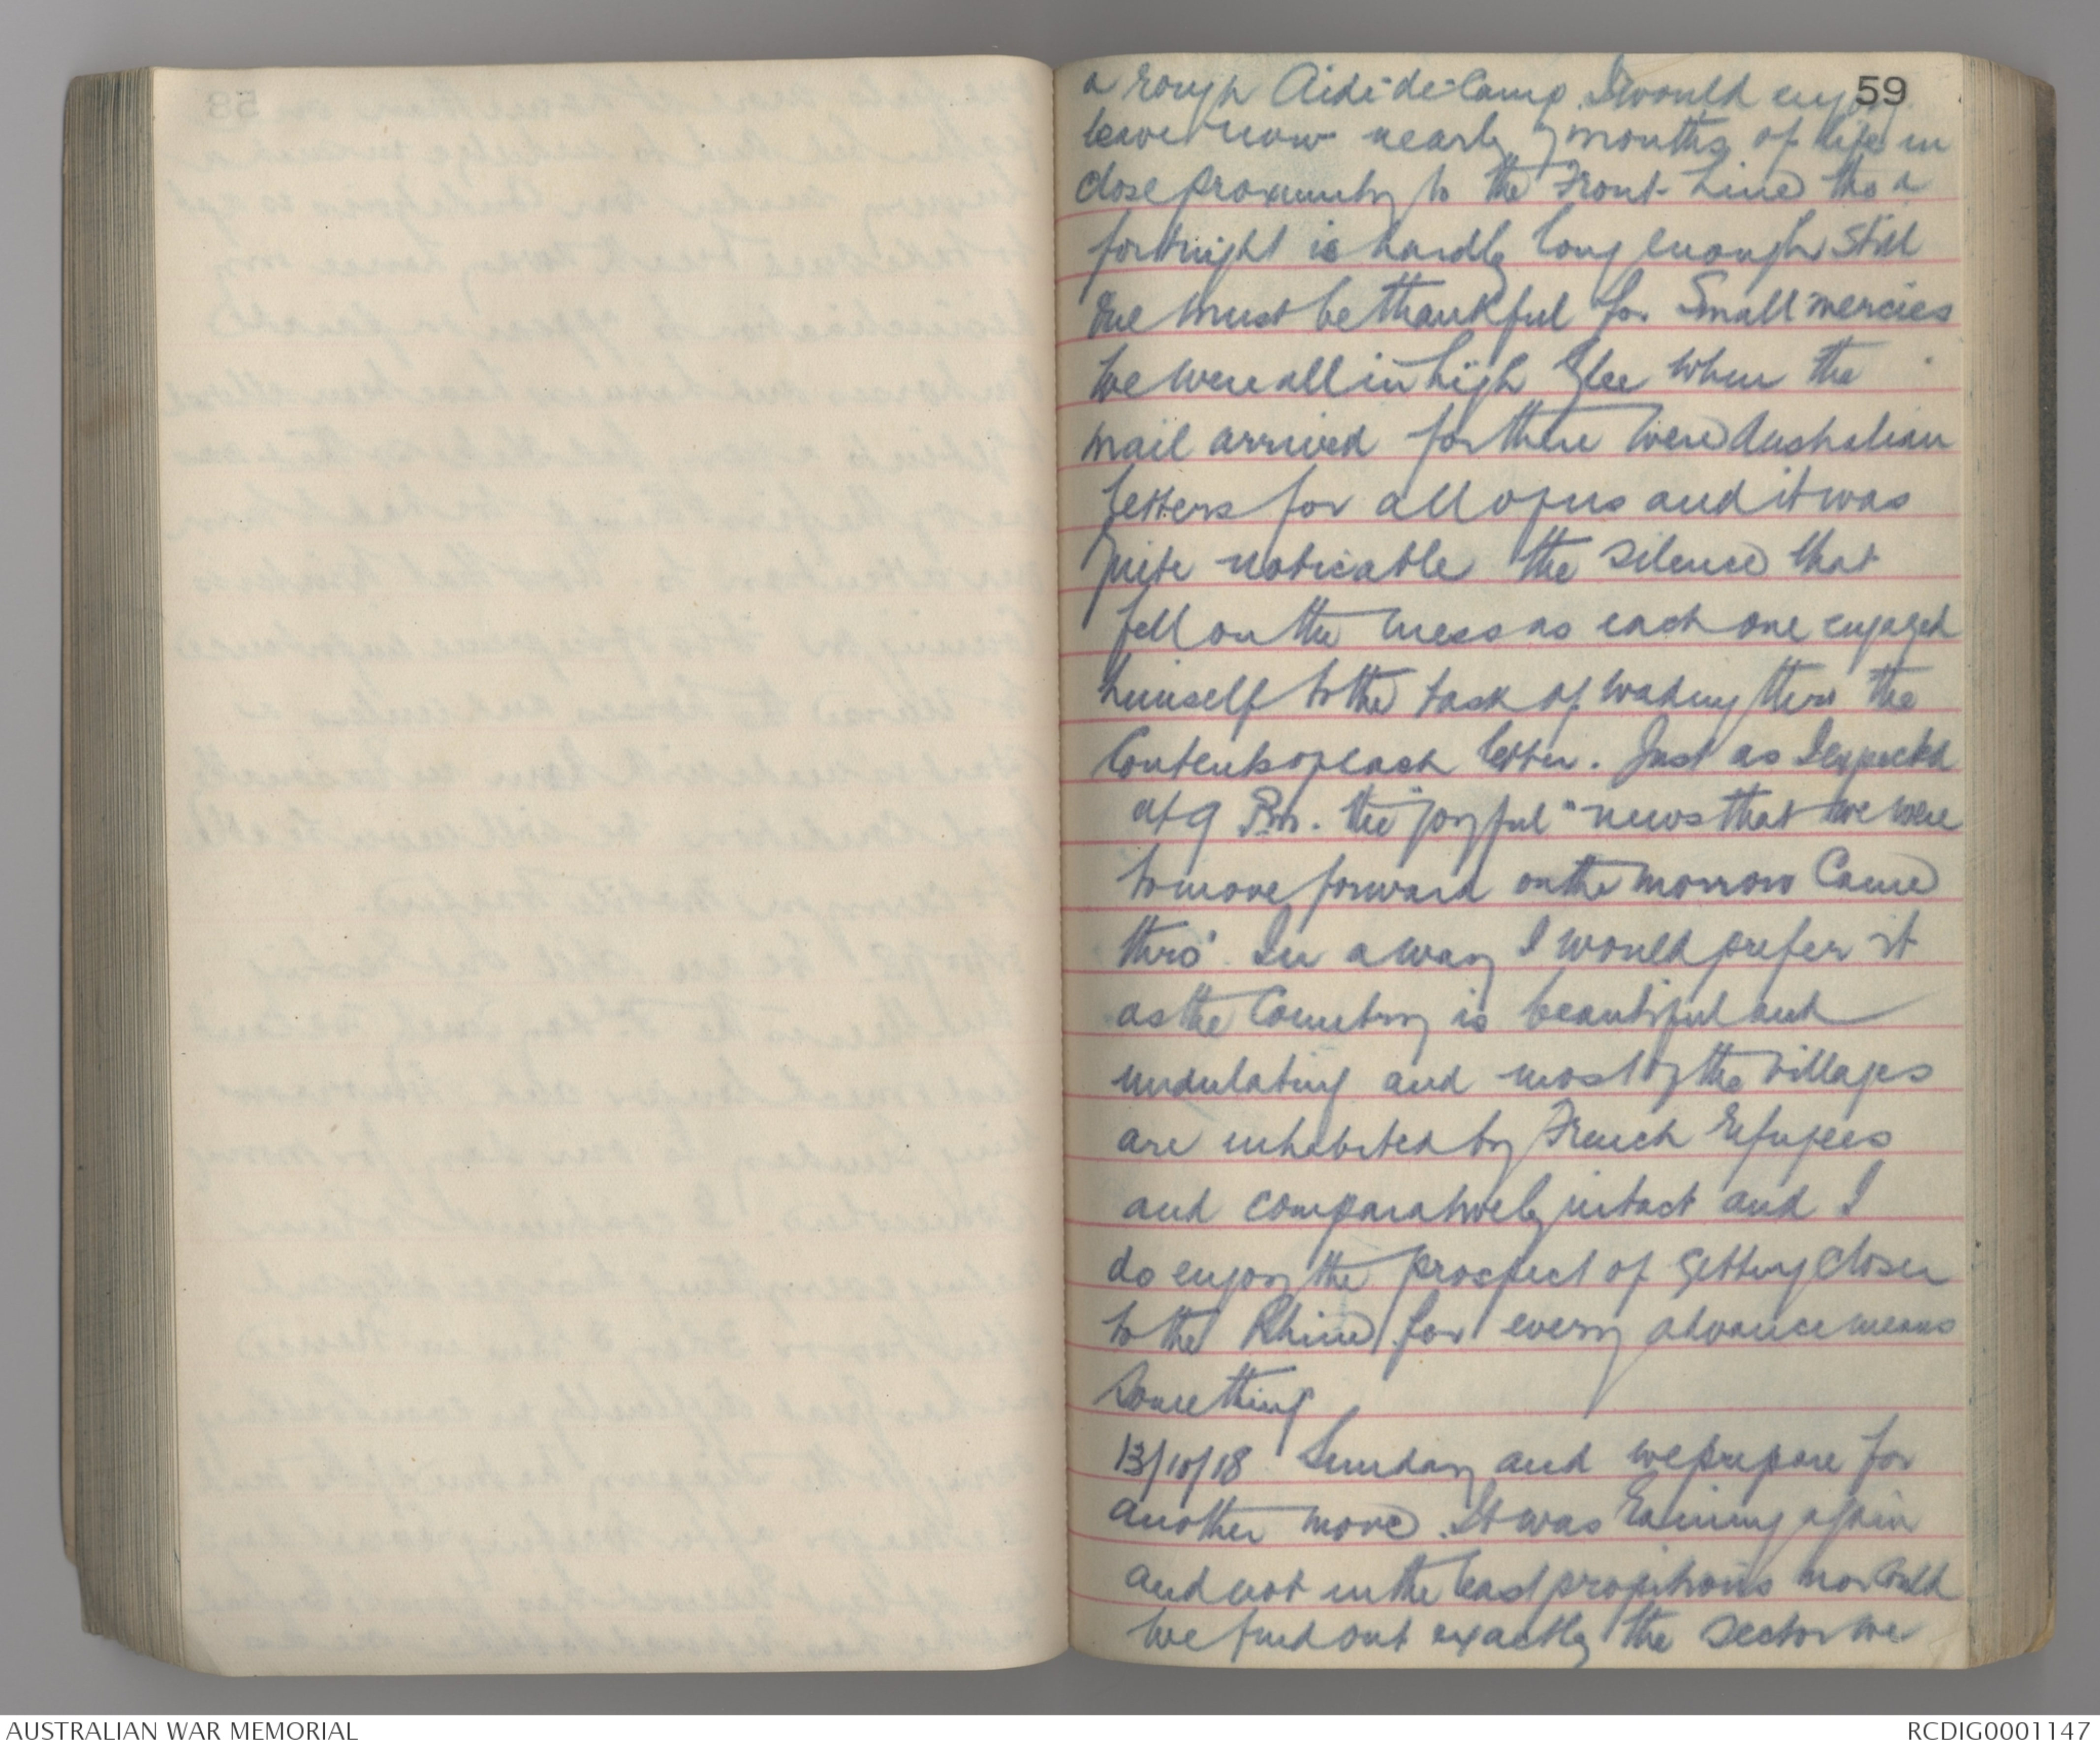 59
a rough Aide-de-Camp. I would enjoy
leave now nearly 7 months of life in
close proximity to the Front Line tho a
fortnight is hardly long enough still
one must be thankful for Small mercies
We were all in high glee when the
mail arrived for there were Australian
letters for all of us and it was
quite noticable the silence that
fell on the mess as each one engaged
himself to the task of wading thro the
Contents of each letter. Just as I expected
at 9 P.m. the "joyful" news that we were
to move forward on the morrow Came
thro'. In a way I would prefer it
as the Country is beautiful and
undulating and most of the villages
are inhabited by French refugees
and comparatively intact and I
do enjoy the prospect of getting closer
to the Rhine for every advance means
Something
13/10/18 Sunday and we prepare for
another move. It was raining again
and not in the least propitious nor Could
we find out exactly the sector we
AUSTRALIAN WAR MEMORIAL
RCDIG0001147